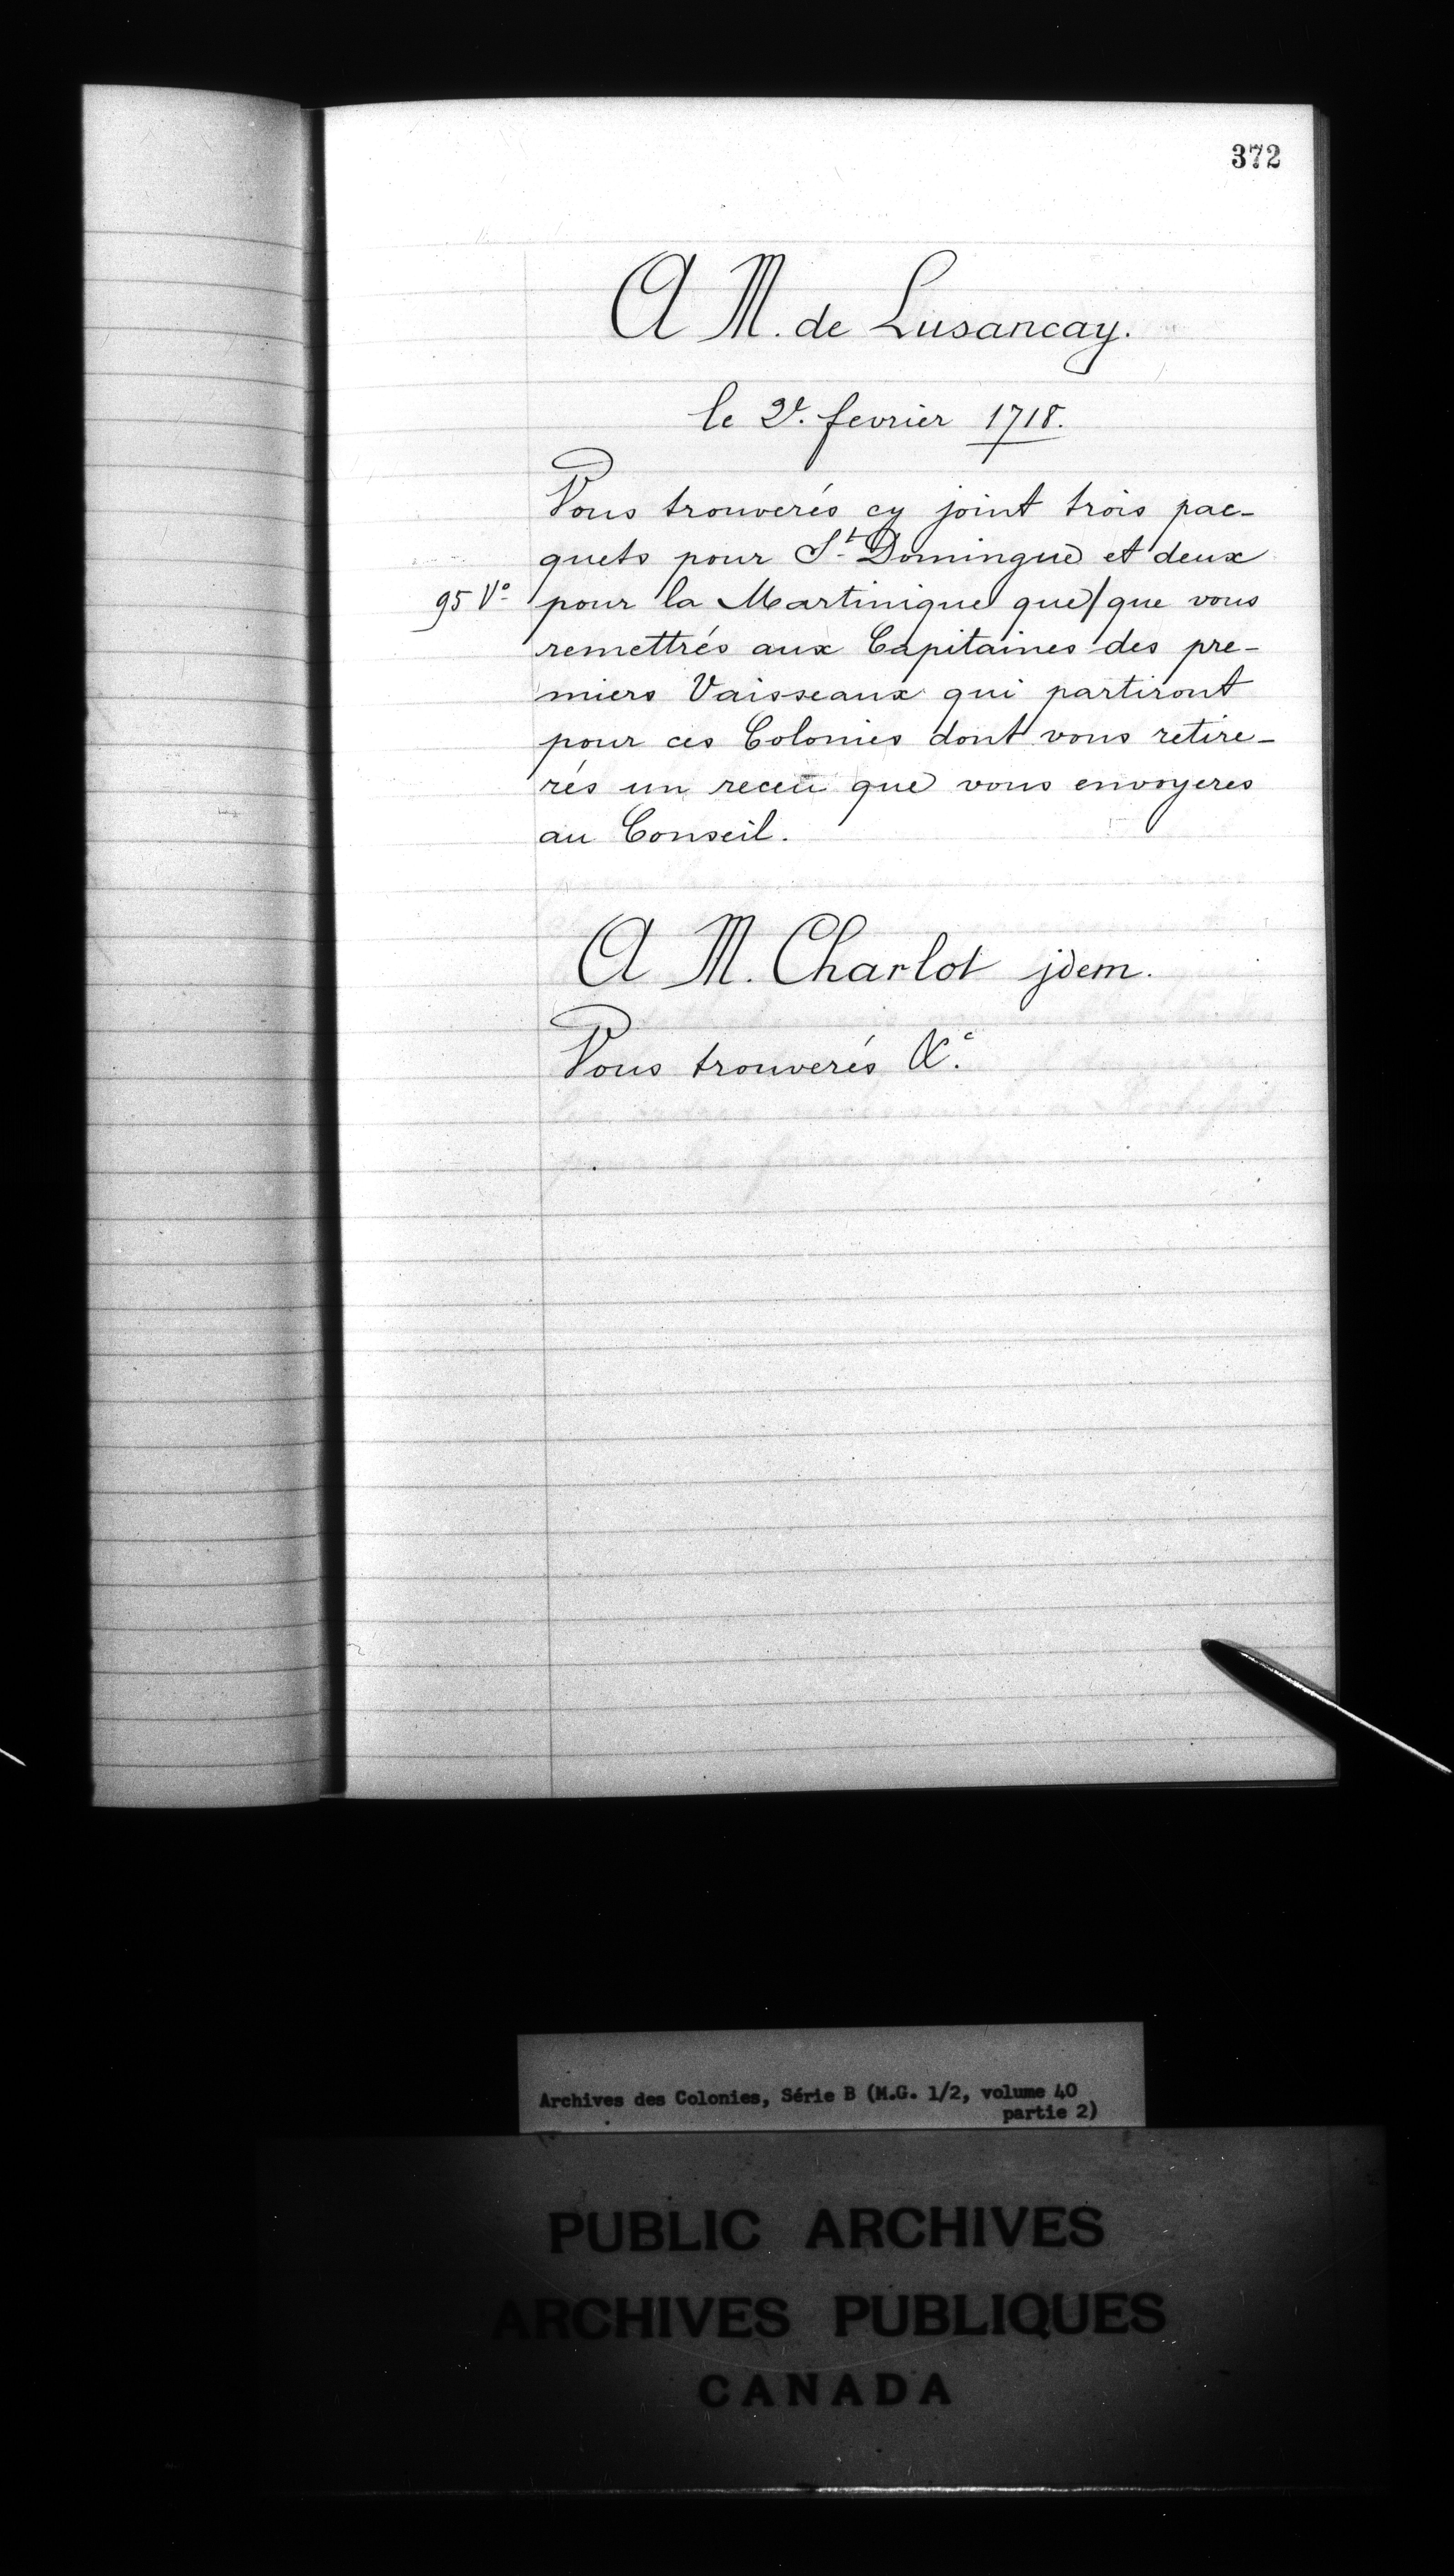 372
A M. de Lusancay.
le 2e. fevrier 1718.
Vous trouverés cy joint trois pac-
quets pour St. Domingue et deux
95 Vo. pour la Martinique que/que vous
remettrés aux Capitaines des pre-
miers Vaisseaux qui partiront
pour ces Colonies dont vous retire-
rés un receu que vous envoyeres
au Conseil.
A M. Charlot jdem.
Vous trouverés &c.
Archives des Colonies, Série B (M.G. 1/2, volume 40
partie 2)
PUBLIC ARCHIVES
ARCHIVES PUBLIQUES
CANADA